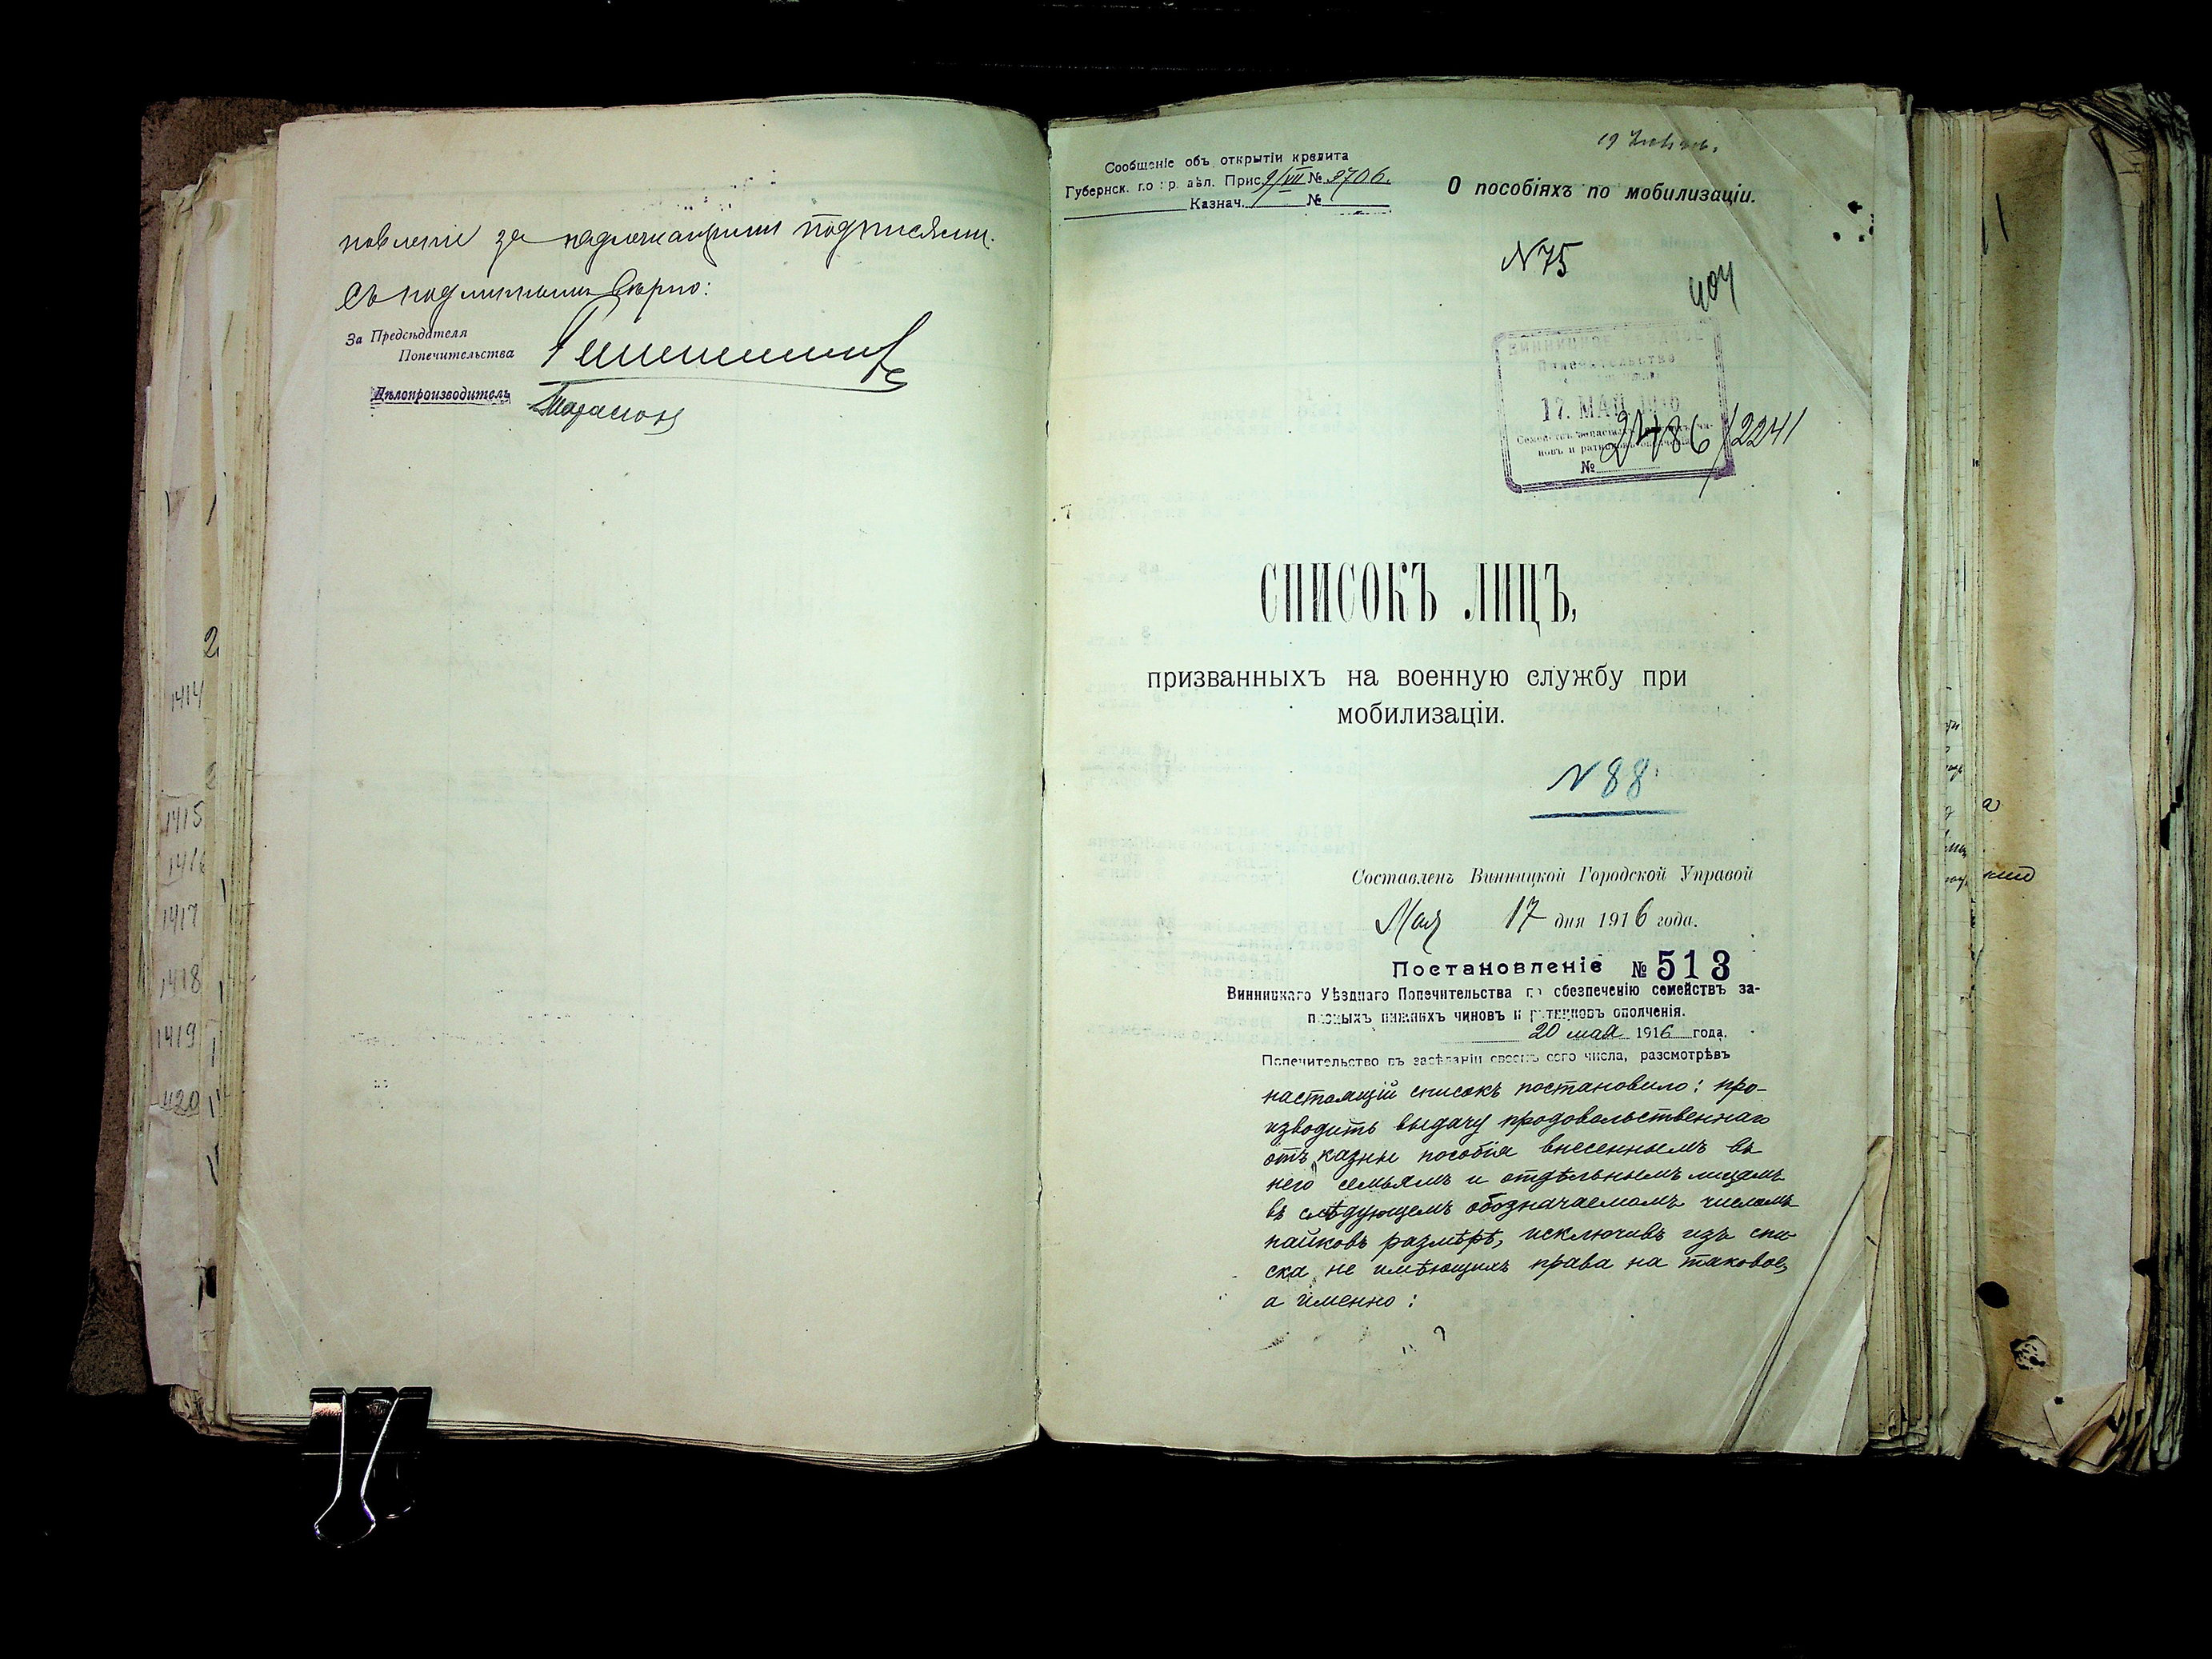 новленіе за надлежащими подписями.
Съ подлиннымъ вѣрно:
За Предсѣдателя
Попечительства
Дѣлопроизводитель
Сообщеніе объ открытіи кредита
Губернск. по Прис. 9/VII № 9706.
Казнач. №
О пособіяхъ по мобилизаціи.
N 75
404
Попечительство
17. МАЙ
2486/2241
№
СПИСОКЪ ЛИЦЪ,
призванныхъ на военную службу при
мобилизаціи.
N 88
Составленъ Винницкой Городской Управой
Мая 17 дня 1916 года.
Постановленіе № 513
Винницкаго Уѣзднаго Попечительства по обезпеченію семействъ за-
пасныхъ нижнихъ чиновъ и ратниковъ ополченія.
20 мая 1916 года.
Попечительство въ засѣданіи своемъ сего числа, разсмотрѣвъ
настоящій списокъ постановило: про-
изводить выдачу продовольственнаго
отъ казны пособія внесеннымъ въ
него семьямъ и отдѣльнымъ лицамъ
въ слѣдующемъ обозначаемомъ числомъ
пайковъ размѣрѣ, исключивъ изъ спи-
ска не имѣющихъ права на таковое,
а именно:
1414
1415
1416
1417
1418
1419
1420